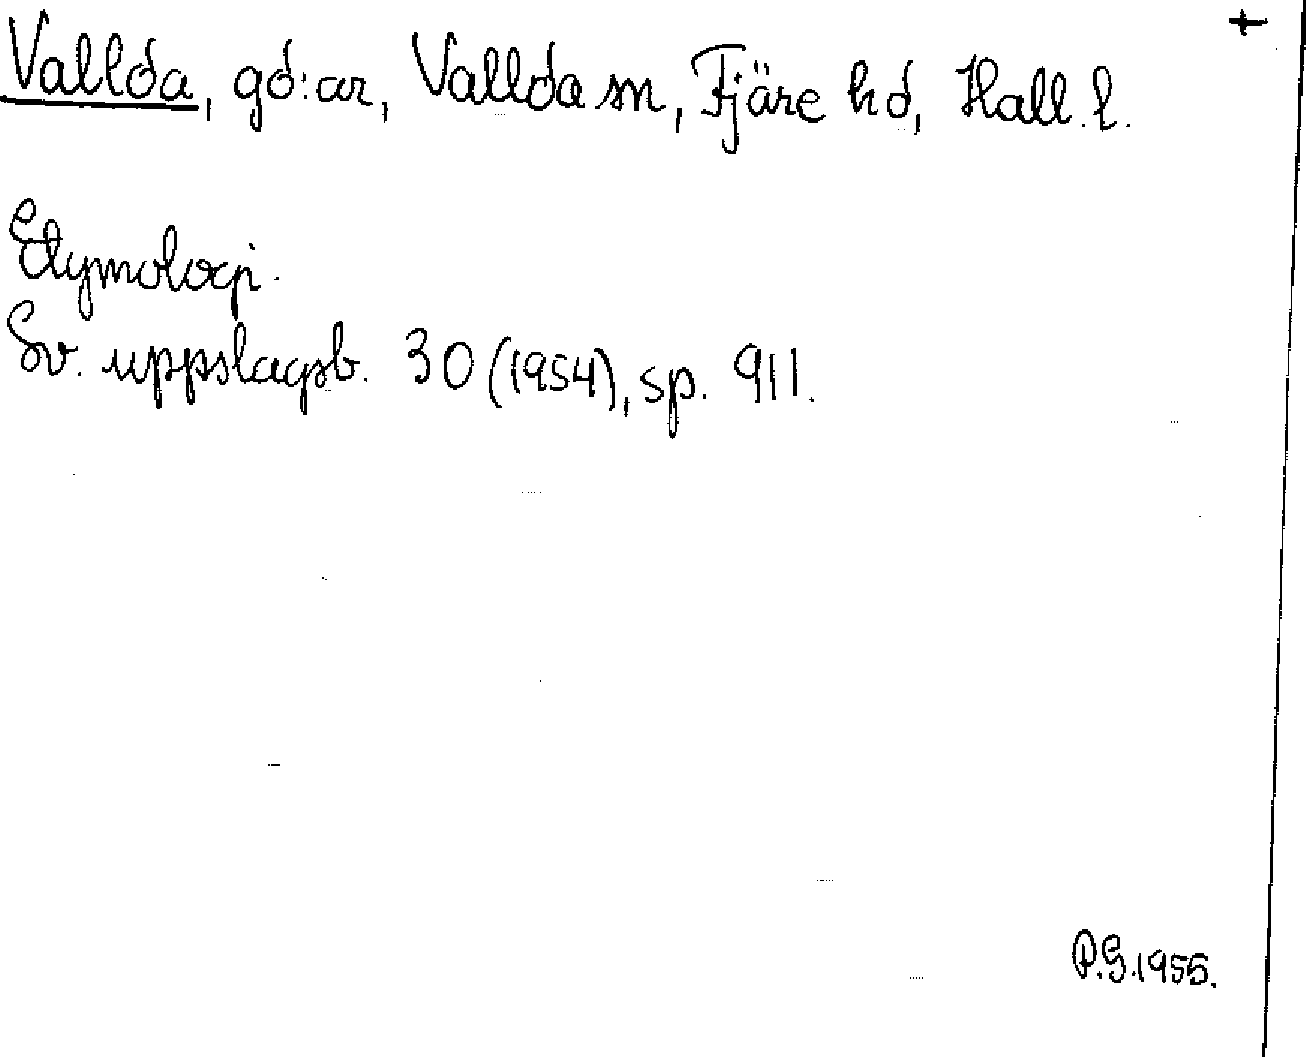 +
Vallda, gd:ar, Vallda sn, Fjäre hd, Hall. l.
Etymologi.
Sv. uppslagsb. 30 (1954), sp. 911.
P.G. 1955.